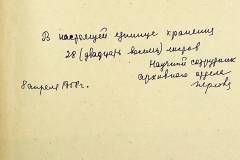 В настоящей единице хранения
28 (двадцать восемь) листов
Научный сотрудник
архивного отдела
8 апреля г.